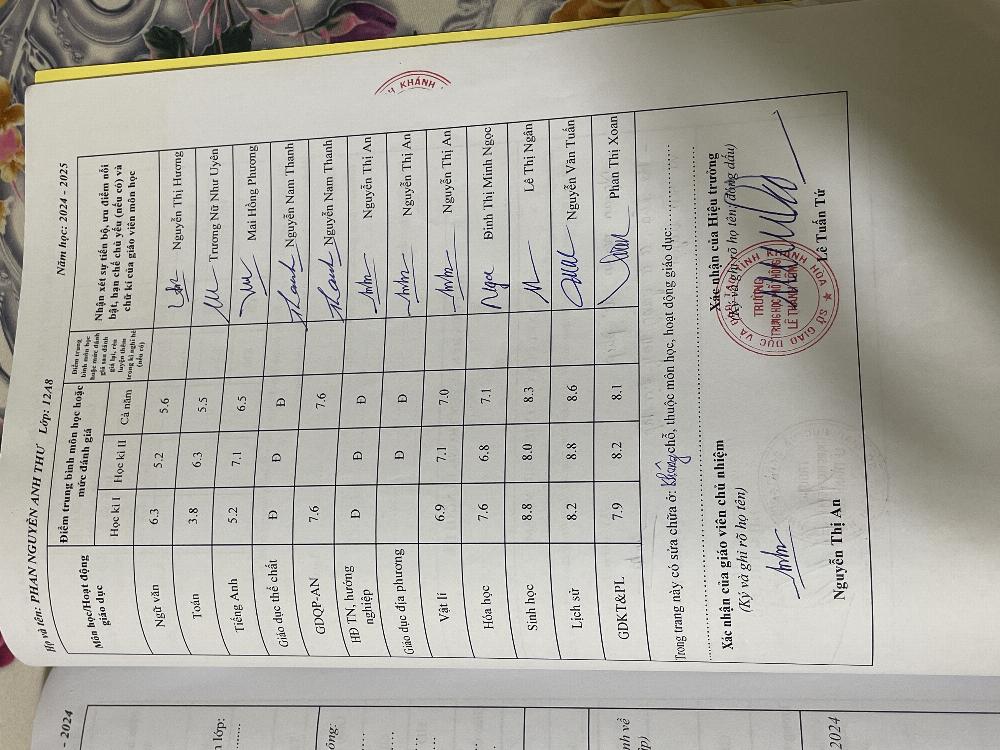 H KHÁNH
Họ và tên: PHAN NGUYỄN ANH THƯ Lớp: 12A8 Năm học: 2024 - 2025
Môn học/Hoạt động giáo dục
Điểm trung bình môn học hoặc mức đánh giá
Học kì I Học kì II Cả năm
Điểm trung bình môn học hoặc mức đánh giá sau đánh giá lại, rèn luyện thêm trong kì nghỉ hè (nếu có)
Nhận xét sự tiến bộ, ưu điểm nổi bật, hạn chế chủ yếu (nếu có) và chữ kí của giáo viên môn học
Ngữ văn 6.3 5.2 5.6 Nguyễn Thị Hương
Toán 3.8 6.3 5.5 Trương Nữ Như Uyên
Tiếng Anh 5.2 7.1 6.5 Mai Hồng Phương
Giáo dục thể chất Đ Đ Đ Nguyễn Nam Thanh
GDQP-AN 7.6 7.6 Nguyễn Nam Thanh
HĐ TN, hướng nghiệp Đ Đ Đ Nguyễn Thị An
Giáo dục địa phương Đ Đ Nguyễn Thị An
Vật lí 6.9 7.1 7.0 Nguyễn Thị An
Hóa học 7.6 6.8 7.1 Ngọc Đinh Thị Minh Ngọc
Sinh học 8.8 8.0 8.3 Lê Thị Ngân
Lịch sử 8.2 8.8 8.6 Nguyễn Văn Tuấn
GDKT&PL 7.9 8.2 8.1 Phan Thị Xoan
Trong trang này có sửa chữa ở: không chỗ, thuộc môn học, hoạt động giáo dục:
Xác nhận của giáo viên chủ nhiệm
(Ký và ghi rõ họ tên)
Nguyễn Thị An
Xác nhận của Hiệu trưởng
(Ký và ghi rõ họ tên, đóng dấu)
SỞ GIÁO DỤC VÀ TỈNH KHÁNH HÒA
TRƯỜNG
TRUNG HỌC PHỔ THÔNG
Lê Tuấn Tứ
- 2024
lớp:
2024